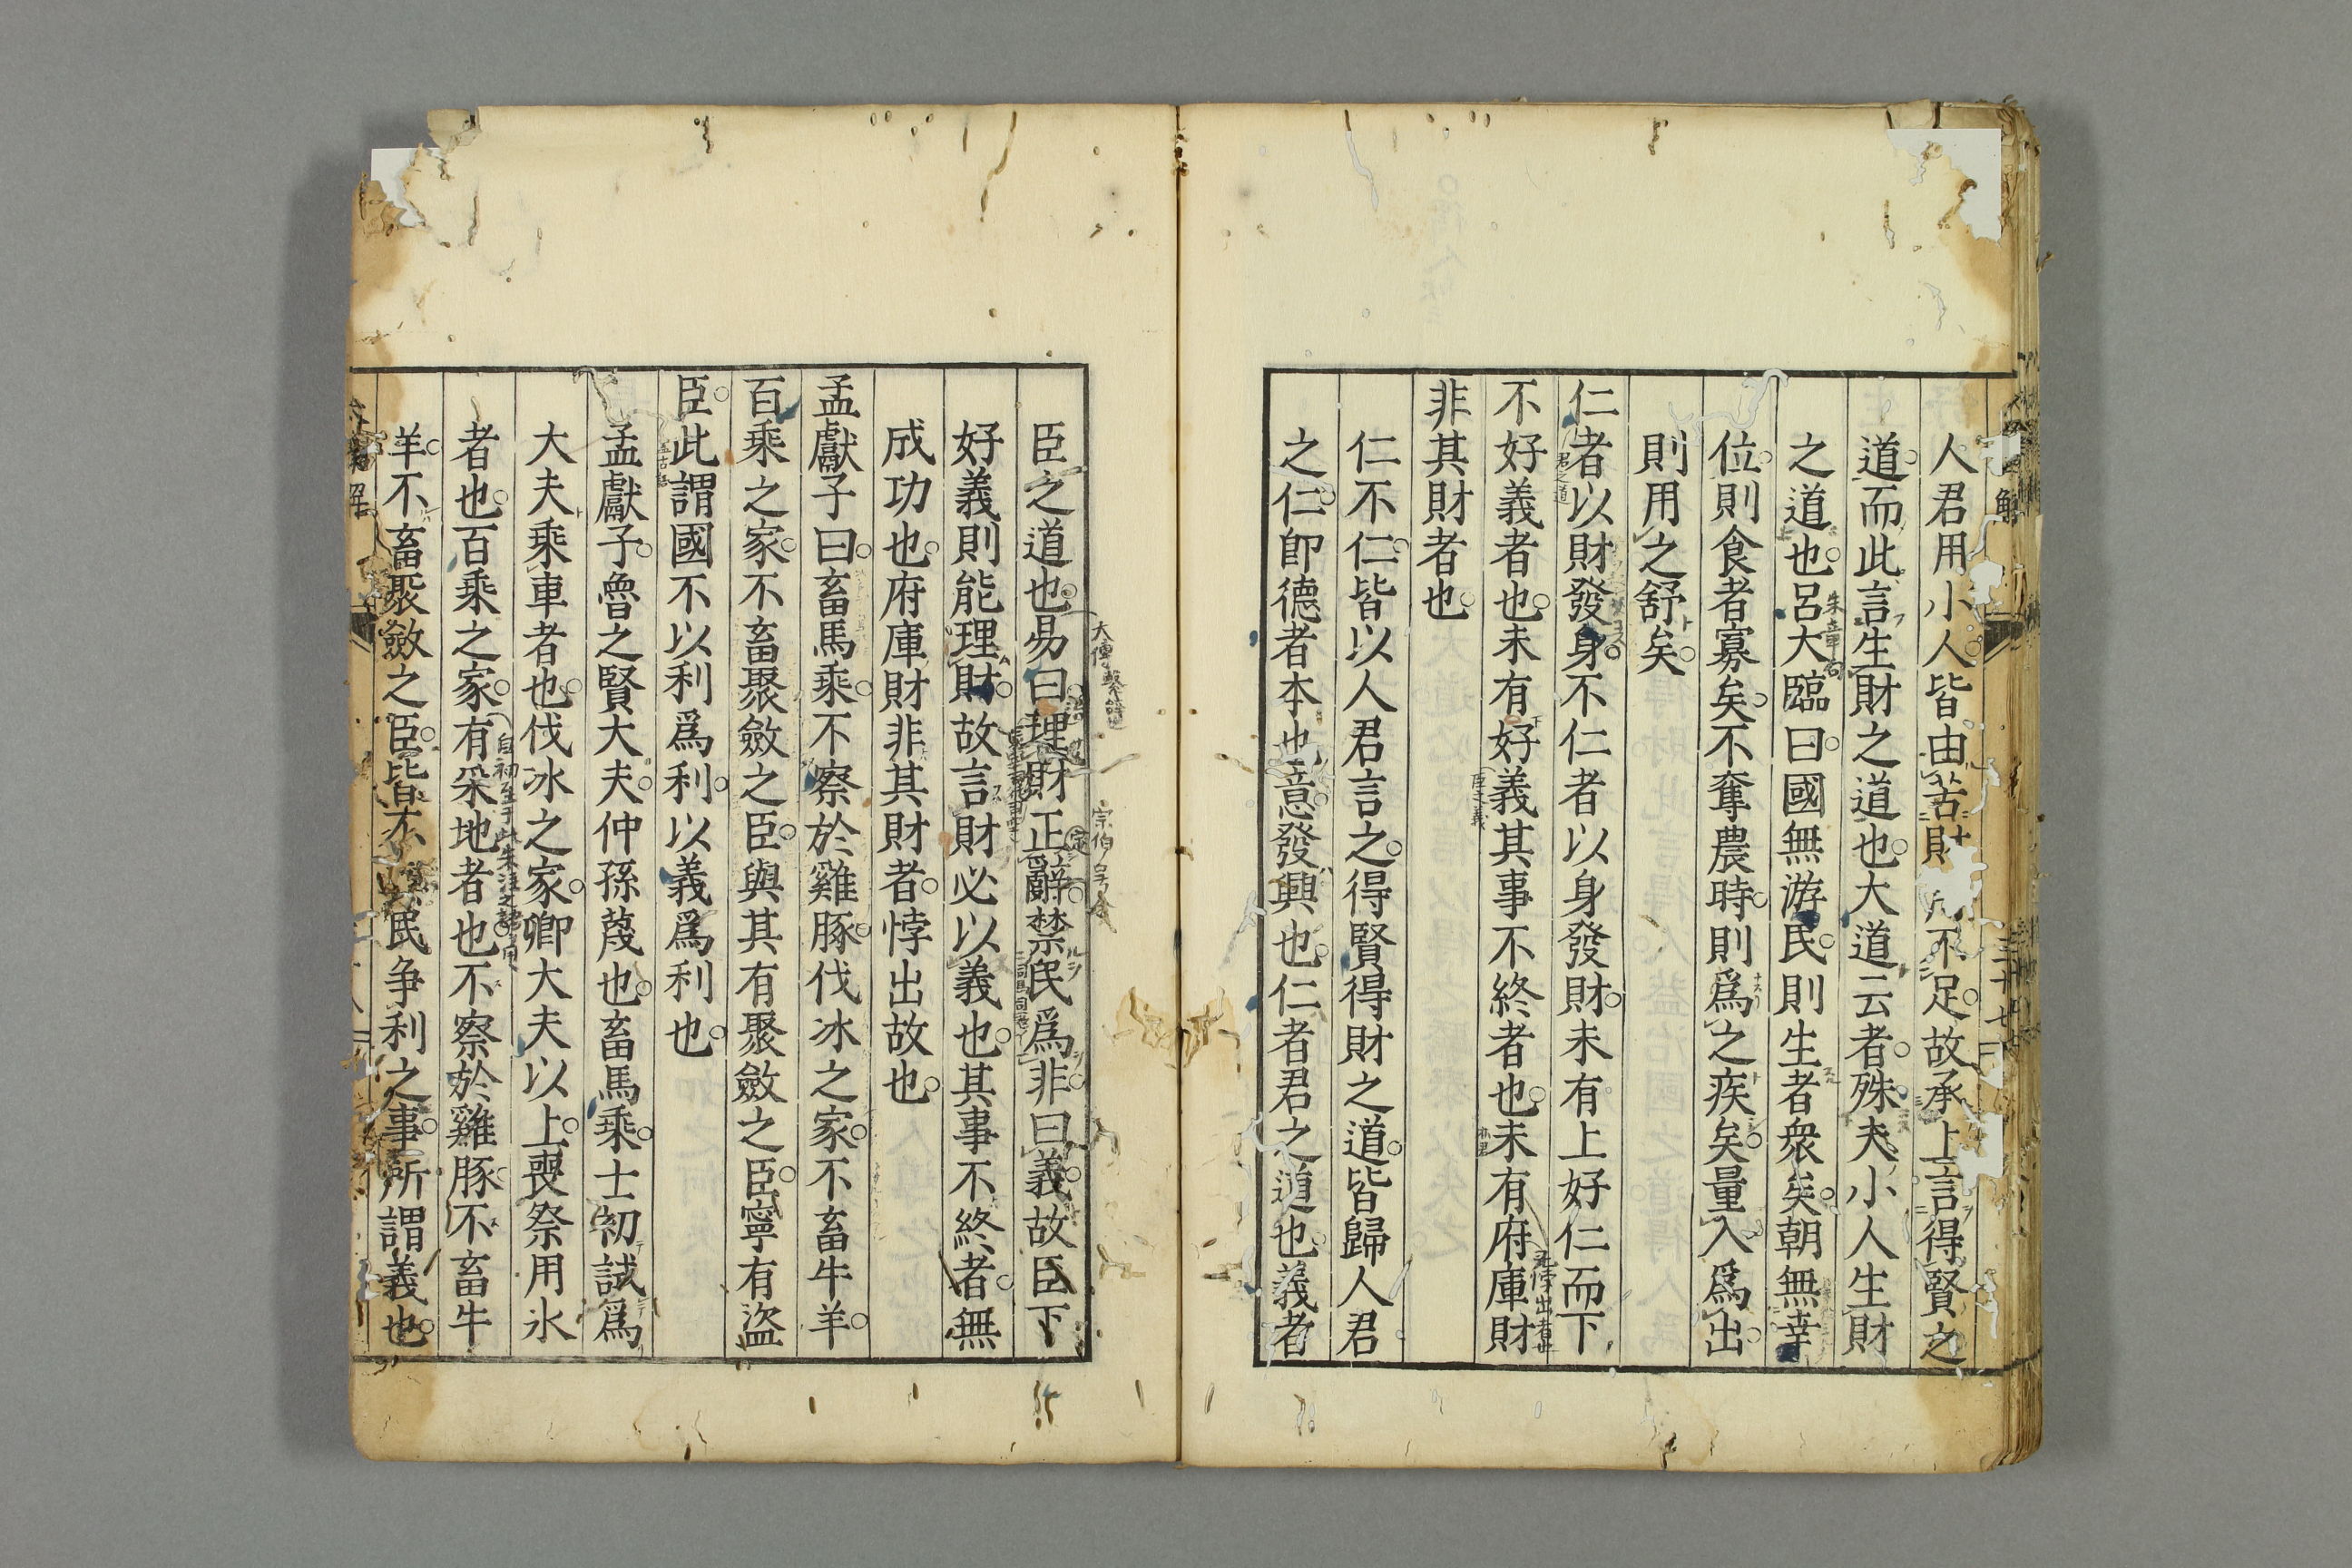 人君用小人皆由苦財用不足故承上言得賢之
道而此言生財之道也大道云者殊夫小人生財
之道也呂大臨曰國無游民則生者衆矣朝無幸
位則食者寡矣不奪農時則爲之疾矣量入爲出
則用之舒矣
仁者以財發身不仁者以身發財未有上好仁而下
不好義者也未有好義其事不終者也未有府庫財
非其財者也
仁不仁皆以人君言之得賢得財之道皆歸人君
之仁卽德者本也意發興也仁者君之道也義者
臣之道也易曰理財正辭禁民爲非曰義故臣下
好義則能理財故言財必以義也其事不終者無
成功也府庫財非其財者悖出故也
孟獻子曰畜馬乘不察於雞豚伐冰之家不畜牛羊
百乘之家不畜聚斂之臣與其有聚斂之臣寧有盜
臣此謂國不以利爲利以義爲利也
孟獻子魯之賢大夫仲孫蔑也畜馬乘士初試爲
大夫乘車者也伐冰之家卿大夫以上喪祭用氷
者也百乘之家有采地者也不察於雞豚不畜牛
羊不畜聚斂之臣皆不與民争利之事所謂義也